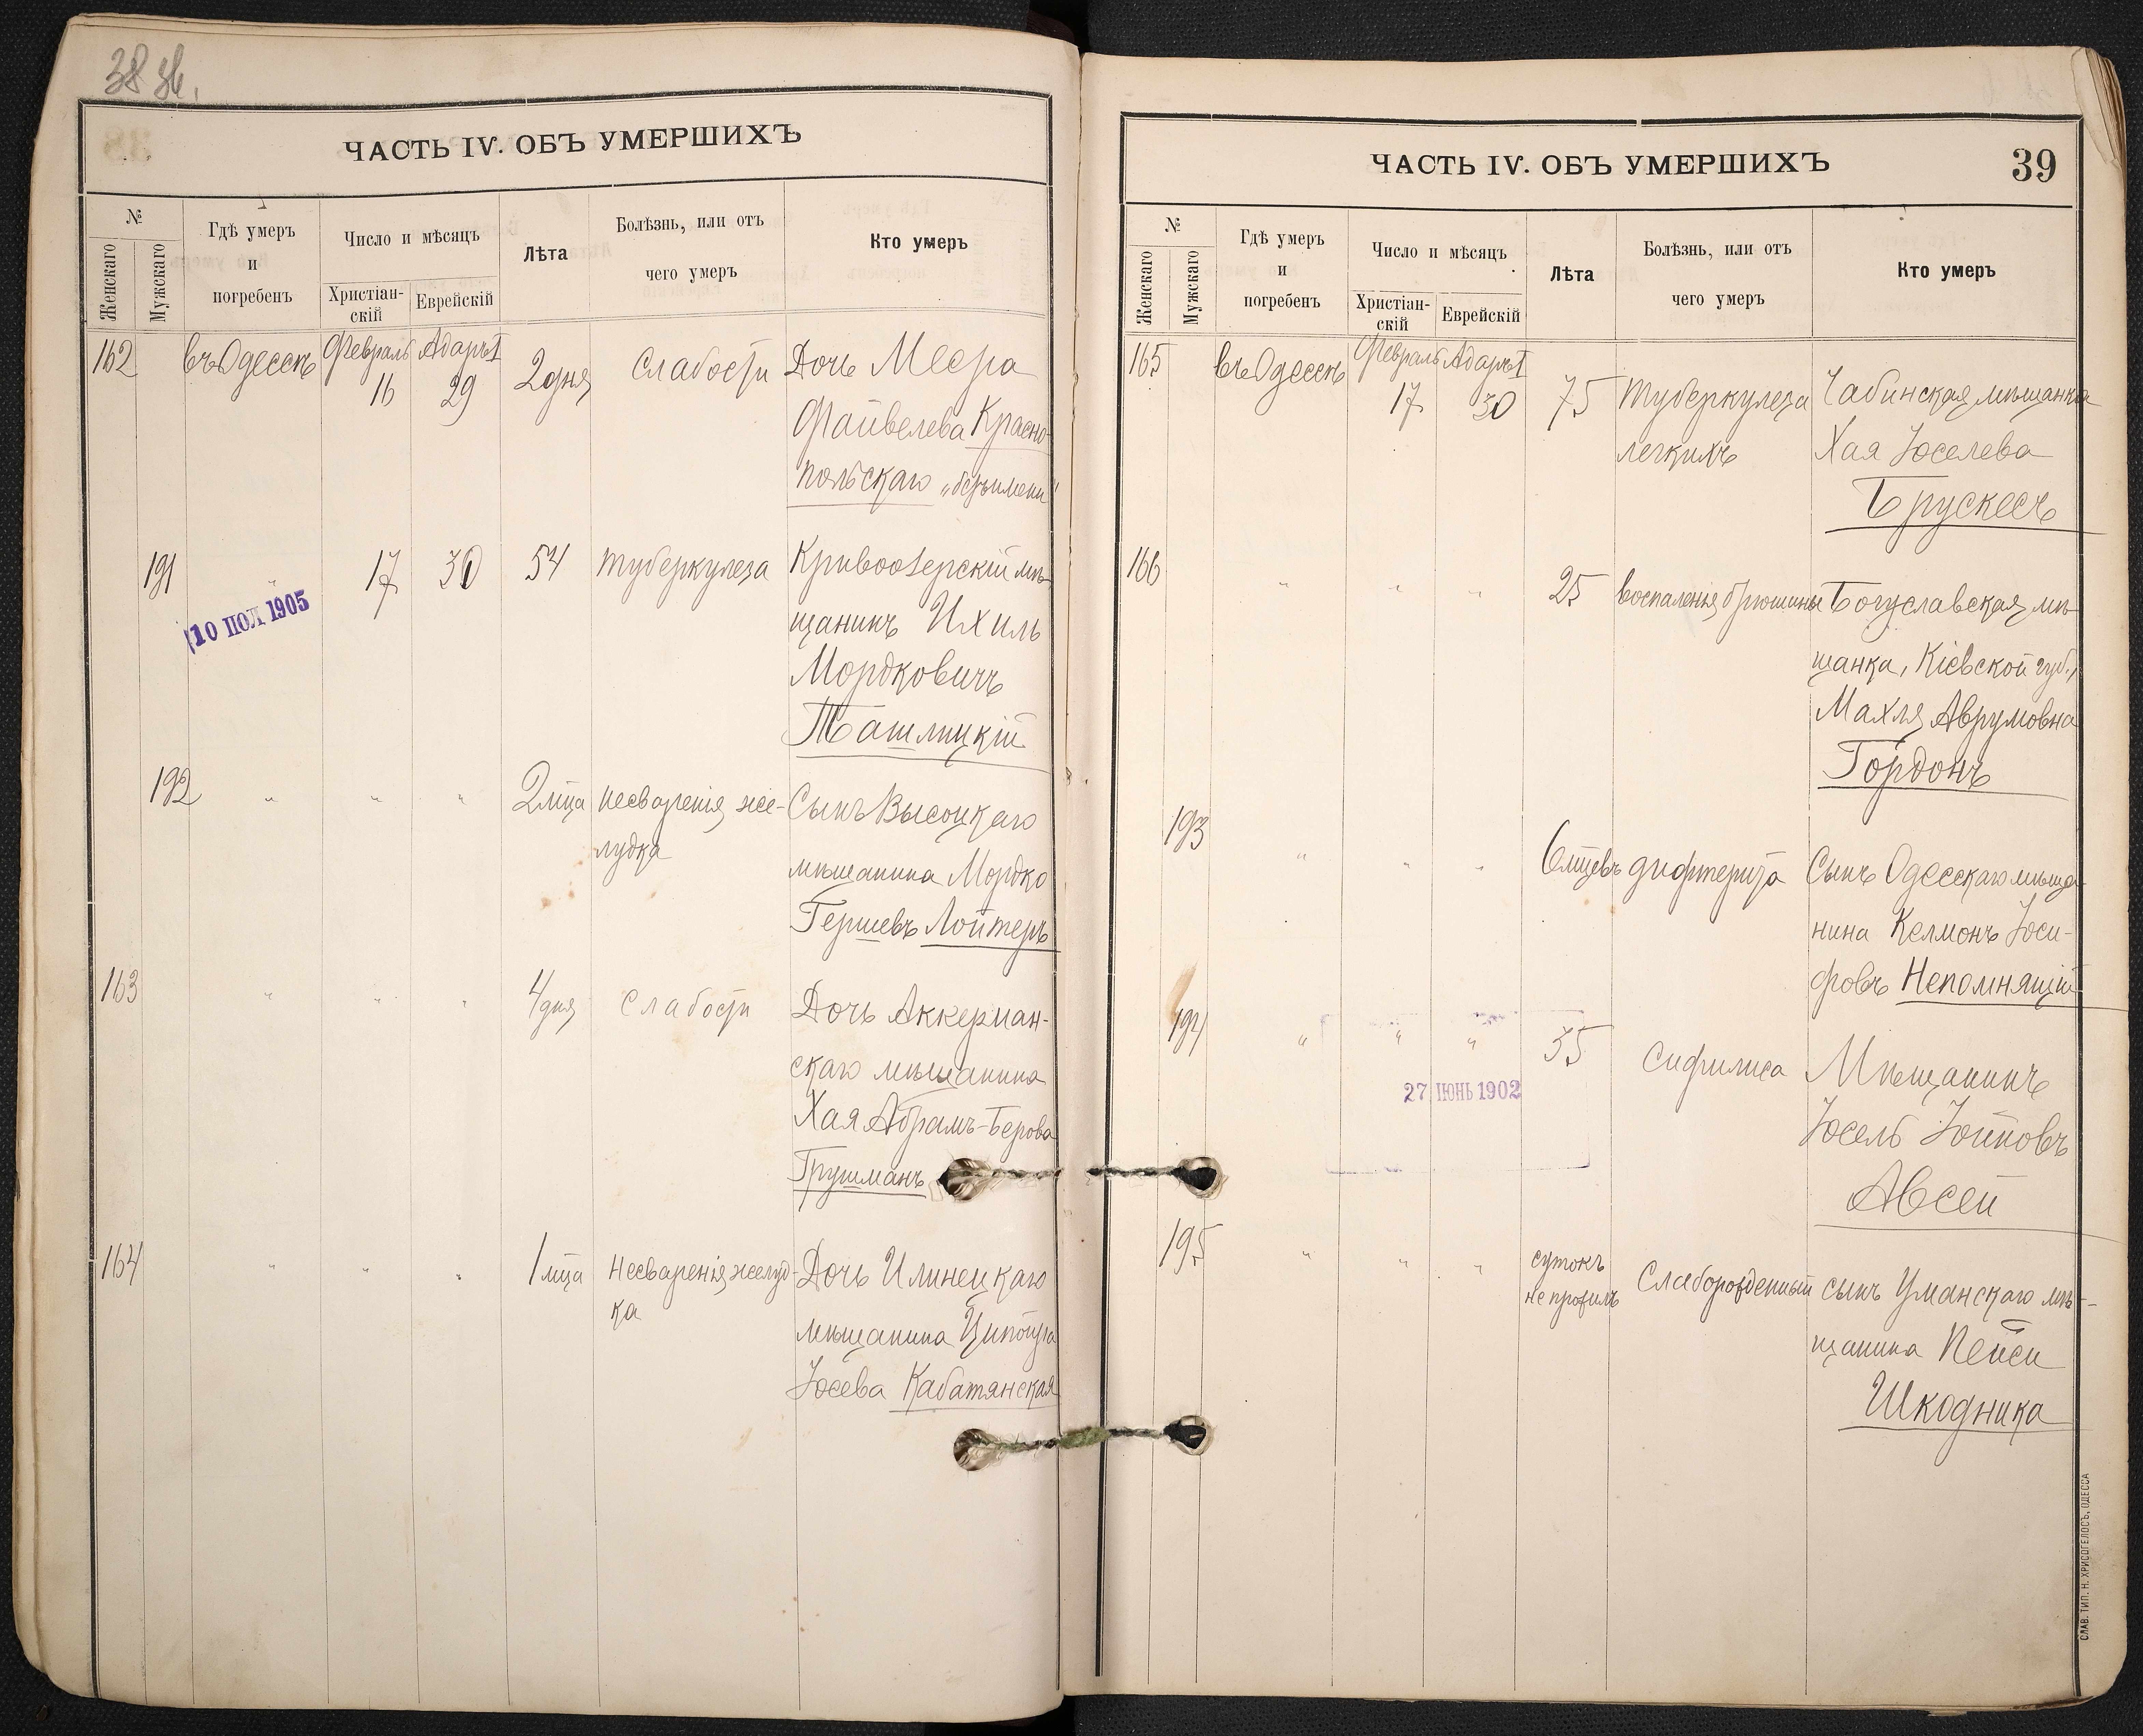 38 зв.
ЧАСТЬ IV. ОБЪ УМЕРШИХЪ
№
Женскаго
Мужскаго
Гдѣ умеръ
и
погребенъ
Число и мѣсяцъ
Христіан-
скій
Еврейскій
Лѣта
Болѣзнь, или отъ
чего умеръ
Кто умеръ
162 въ Одессѣ Февраль Адаръ I
16 29 2 дня Слабости Дочь Меера
Файвелева Красно-
польскаго „безъ имени“
191 17 30 54 туберкулеза Кривоозерскій мѣ-
щанинъ Ихиль
10 ПОЛ 1905
Мордковичъ
Ташлицкій
192 " " " 2 мца несваренія же- Сынъ Высоцкаго
лудка
мѣщанина Мордко
Гершевъ Лойтеръ
163 " " " 4 дня Слабости Дочь Аккерман-
скаго мѣщанина
Хая Абрамъ-Берова
Грушманъ
164 " " " 1 мца Несваренія желуд- Дочь Илинецкаго
ка
мѣщанина Ципойра
Іосева Кабатянская
ЧАСТЬ IV. ОБЪ УМЕРШИХЪ 39
№
Женскаго
Мужскаго
Гдѣ умеръ
и
погребенъ
Число и мѣсяцъ
Христіан-
скій
Еврейскій
Лѣта
Болѣзнь, или отъ
чего умеръ
Кто умеръ
165 въ Одессѣ Февраль Адаръ I
17 30 75 Туберкулеза Чабинская мѣщанка
легкихъ Хая Іоселева
Брускесъ
166 " " " 25 воспаленія брюшины Богуславская мѣ-
щанка, Кіевской губ.,
Махля Аврумовна
Гордонъ
193 " " " 6 мцевъ дифтерита Сынъ Одесскаго мѣща-
нина Келмонъ Іоси-
фовъ Непомнящій
194 " " " 35 Сифилиса Мѣщанинъ
27 ІЮНЬ 1902
Іосель Іойновъ
Авсей
195 " " " сутокъ
не прожилъ Слаборожденный сынъ Уманскаго мѣ-
щанина Пейси
Шкодника
СЛАВ. ТИП. Н. ХРИСОГЕЛОСЪ, ОДЕССА